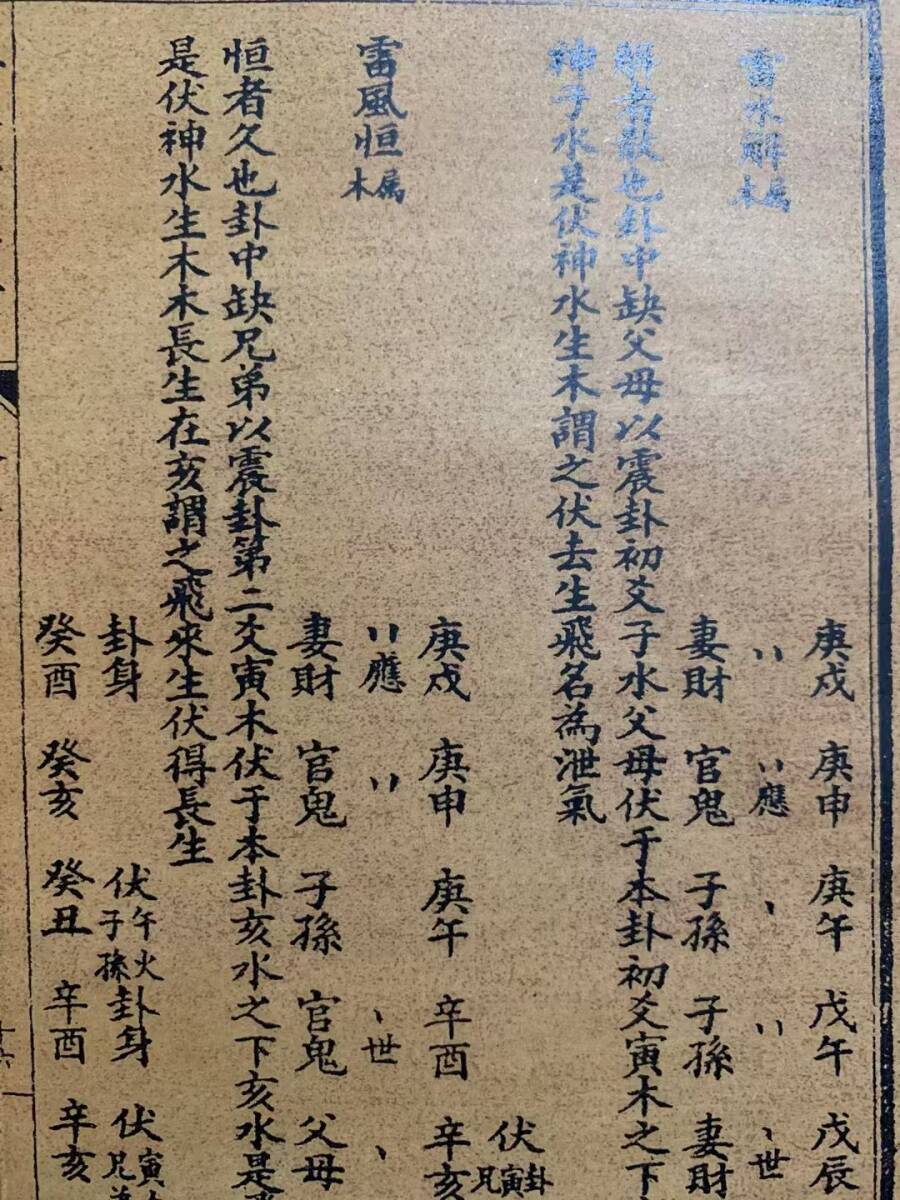 雷水解 属木
庚戌 庚申 庚午 戊午 戊辰
〃 〃應 、 〃 、世
妻財 官鬼 子孫 子孫 妻財
解者散也卦中缺父母以震卦初爻子水父母伏于本卦初爻寅木之下
神子水是伏神水生木謂之伏去生飛名為泄氣
伏 卦寅兄
雷風恒 属木
庚戌 庚申 庚午 辛酉 辛亥
〃應 〃 、世 、
妻財 官鬼 子孫 官鬼 父母
恒者久也卦中缺兄弟以震卦第二爻寅木伏于本卦亥水之下亥水是
是伏神水生木木長生在亥謂之飛來生伏得長生
卦身 伏午火子孫 卦身 伏寅兄
癸酉 癸亥 癸丑 辛酉 辛亥